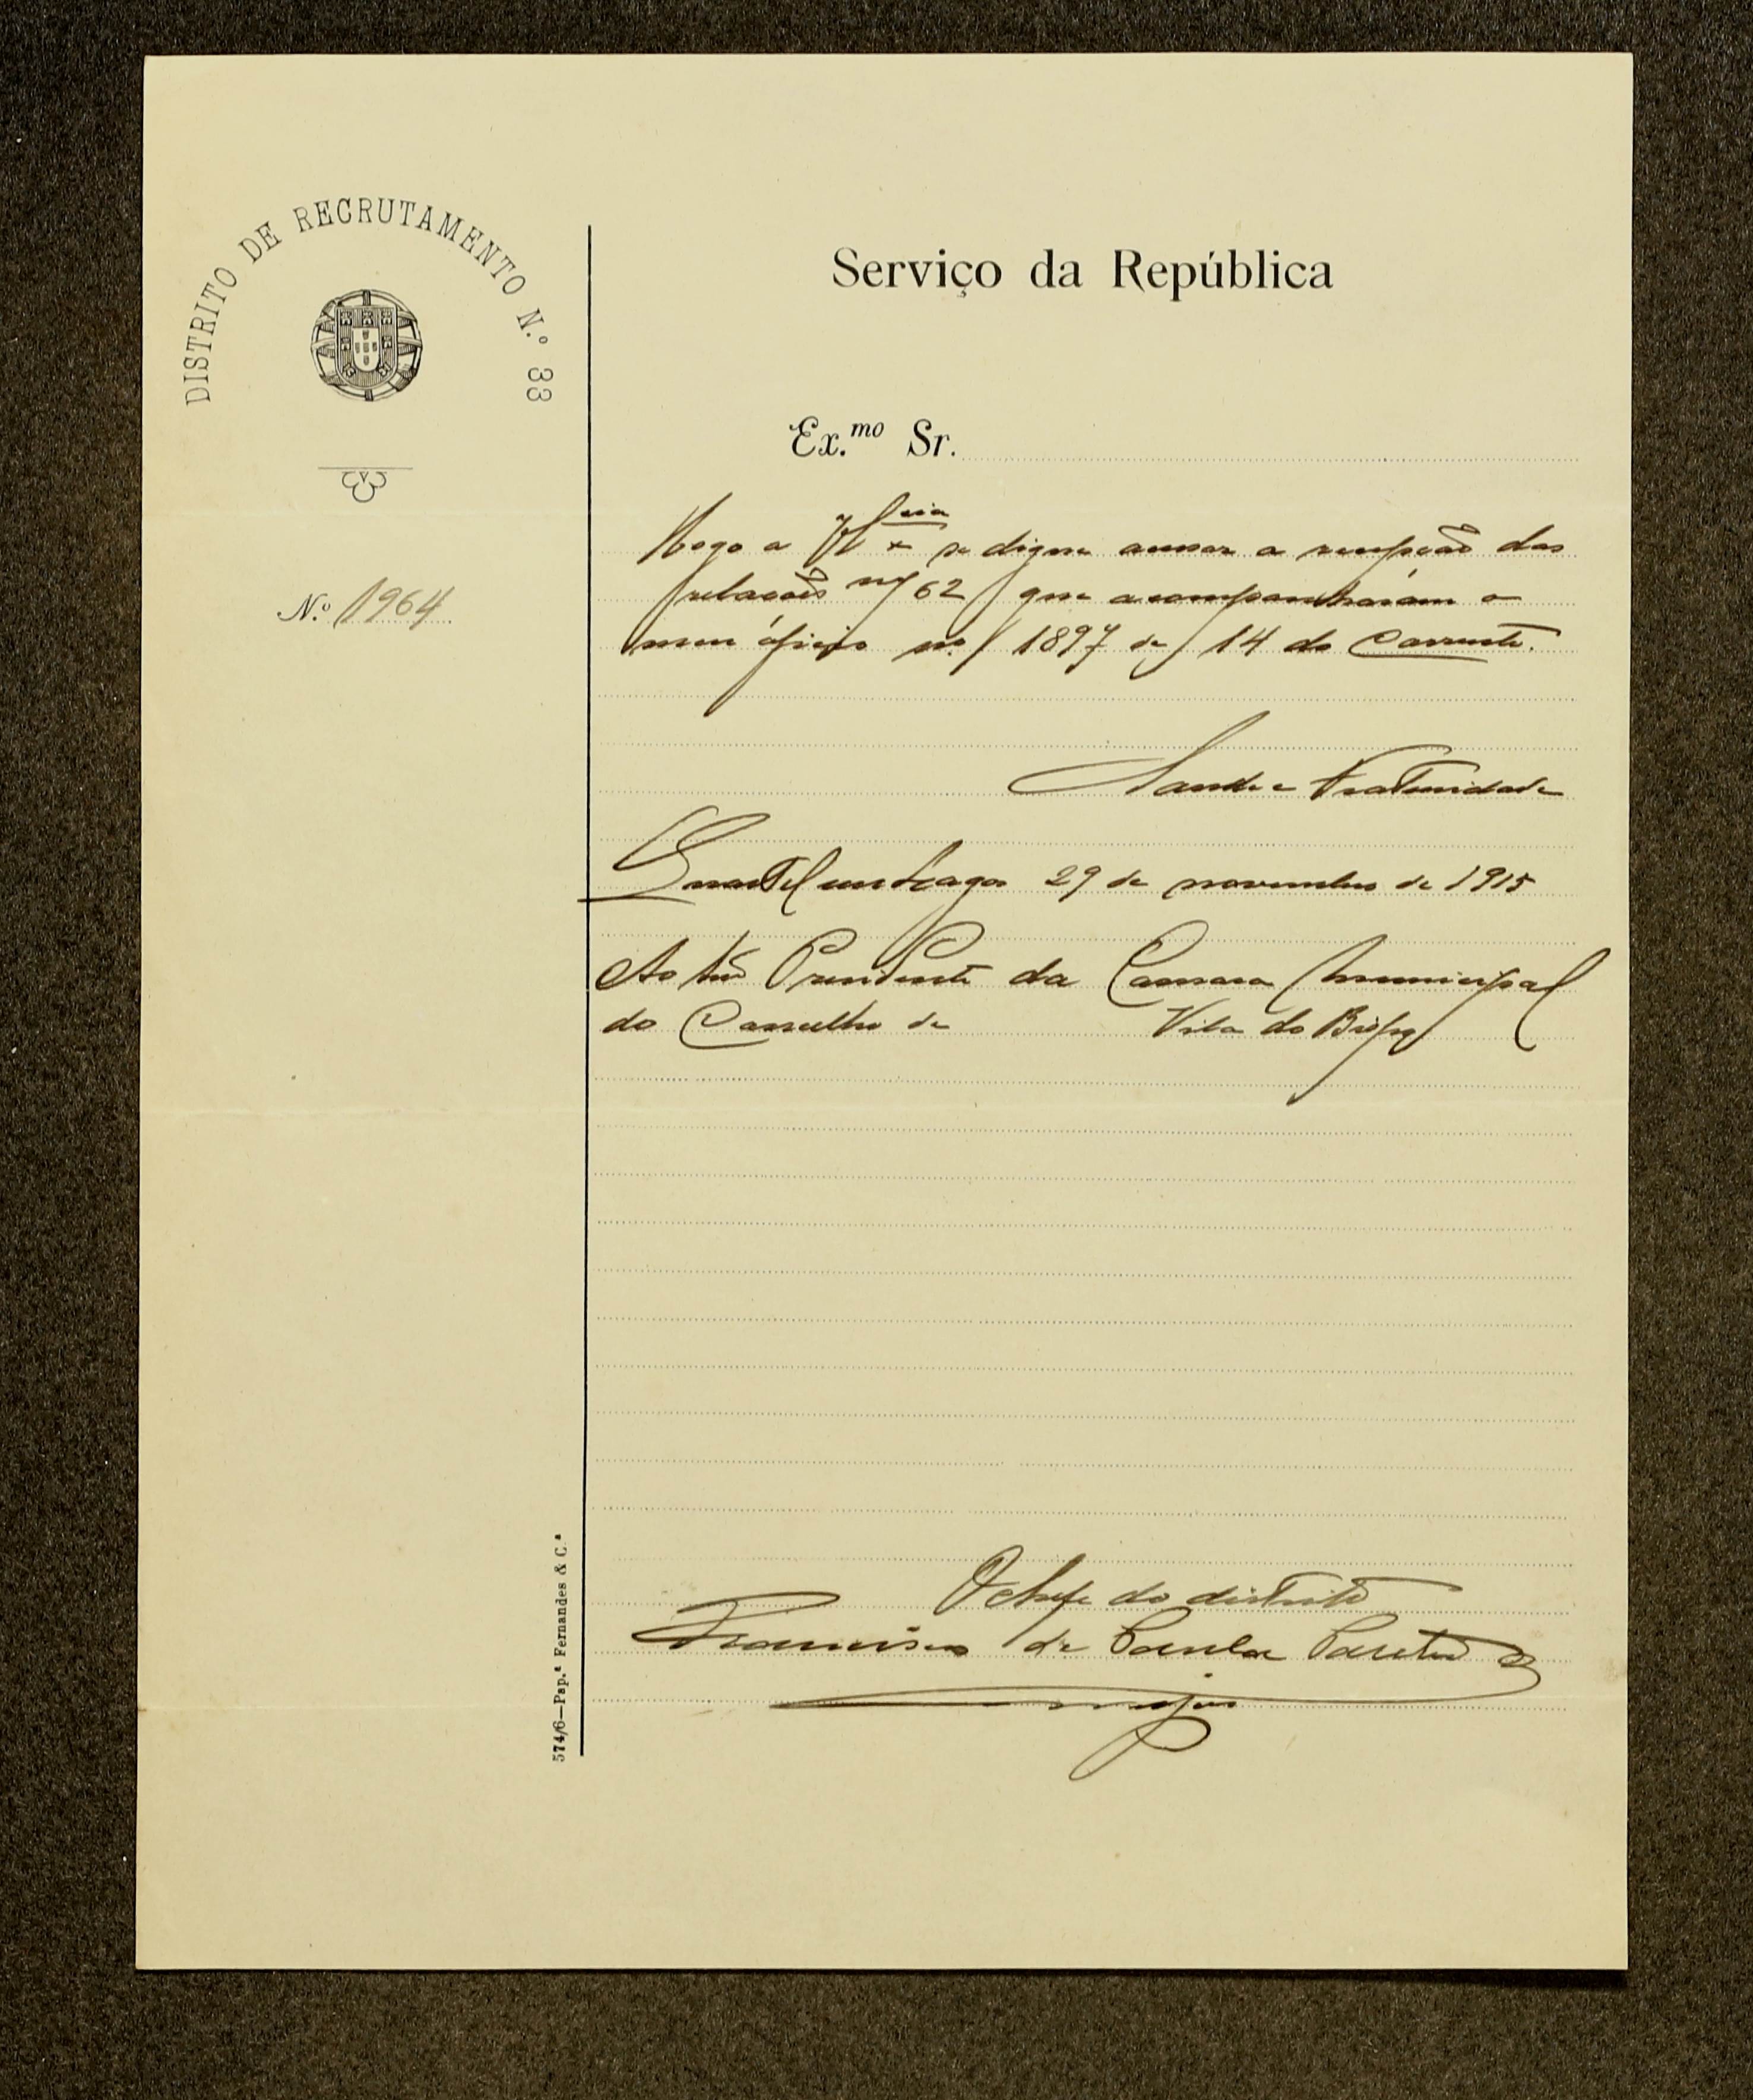 DISTRITO DE RECRUTAMENTO N.º 33
Serviço da República
Ex.mo Sr.
N.º 1964
Rogo a V. Ex.cia se digne acusar a recepção das
relações nº 62 que acompanháram o
meu ófício nº 1897 de 14 do Corrente.
Saude e Fraternidade
Quartel em Lagos 29 de novembro de 1915
Ao Presidente da Camara Municipal
do Concelho de Vila do Bispo
O chefe do distrito
Francisco de Paula
major
574/6—Pap.ª Fernandes & C.ª